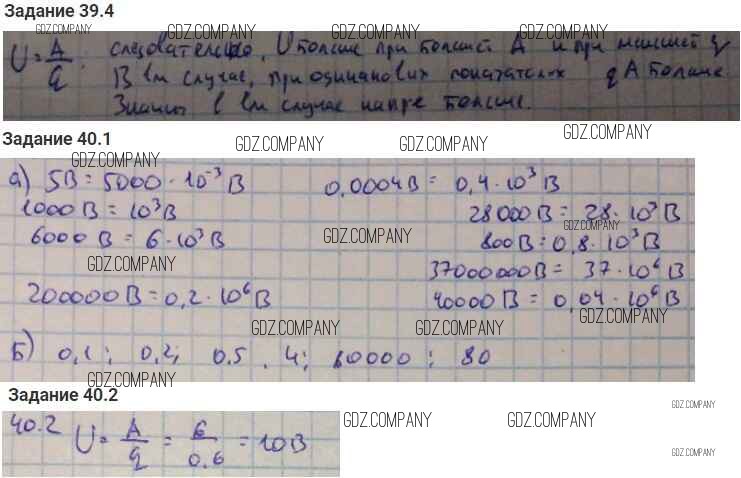 Задание 39.4
GDZ.COMPANY GDZ.COMPANY GDZ.COMPANY
U = A/q ; следовательно, U больше при большей A и при меньшей q
В I случае, при одинаковых показателях q A больше.
Значит в I случае напре больше.
Задание 40.1
GDZ.COMPANY GDZ.COMPANY GDZ.COMPANY
GDZ.COMPANY
а) 5В = 5000 · 10⁻³ В 0,0004В = 0,4 · 10³ В
1000 В = 10³ В 28000В = 28 · 10³ В
GDZ.COMPANY GDZ.COMPANY
6000 В = 6 · 10³ В 800В = 0,8 · 10³ В
GDZ.COMPANY
37000000В = 37 · 10⁶ В
200000 В = 0,2 · 10⁶ В 40000 В = 0,04 · 10⁶ В
GDZ.COMPANY GDZ.COMPANY GDZ.COMPANY
Б) 0,1 ; 0,2; 0,5 . 4; 60000 ; 80
GDZ.COMPANY
Задание 40.2
GDZ.COMPANY
40.2 U = A/q = 6/0.6 = 10В
GDZ.COMPANY GDZ.COMPANY
GDZ.COMPANY